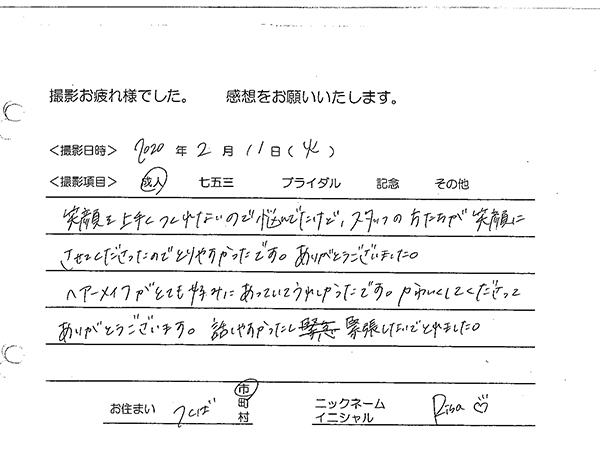 撮影お疲れ様でした。 感想をお願いいたします。
＜撮影日時＞ 2020 年 2 月 11 日 (火)
＜撮影項目＞ 成人 七五三 ブライダル 記念 その他
笑顔を上手くつくれないので悩んでたけど、スタッフの方たちが笑顔に
させてくださったのでとりやすかったです。ありがとうございました。
ヘアーメイクがとても好みにあっていてうれしかったです。かわいくしてくださって
ありがとうございます。話しやすかったし緊張しないでとれました。
お住まい つくば 市 町 村 ニックネーム イニシャル Risa